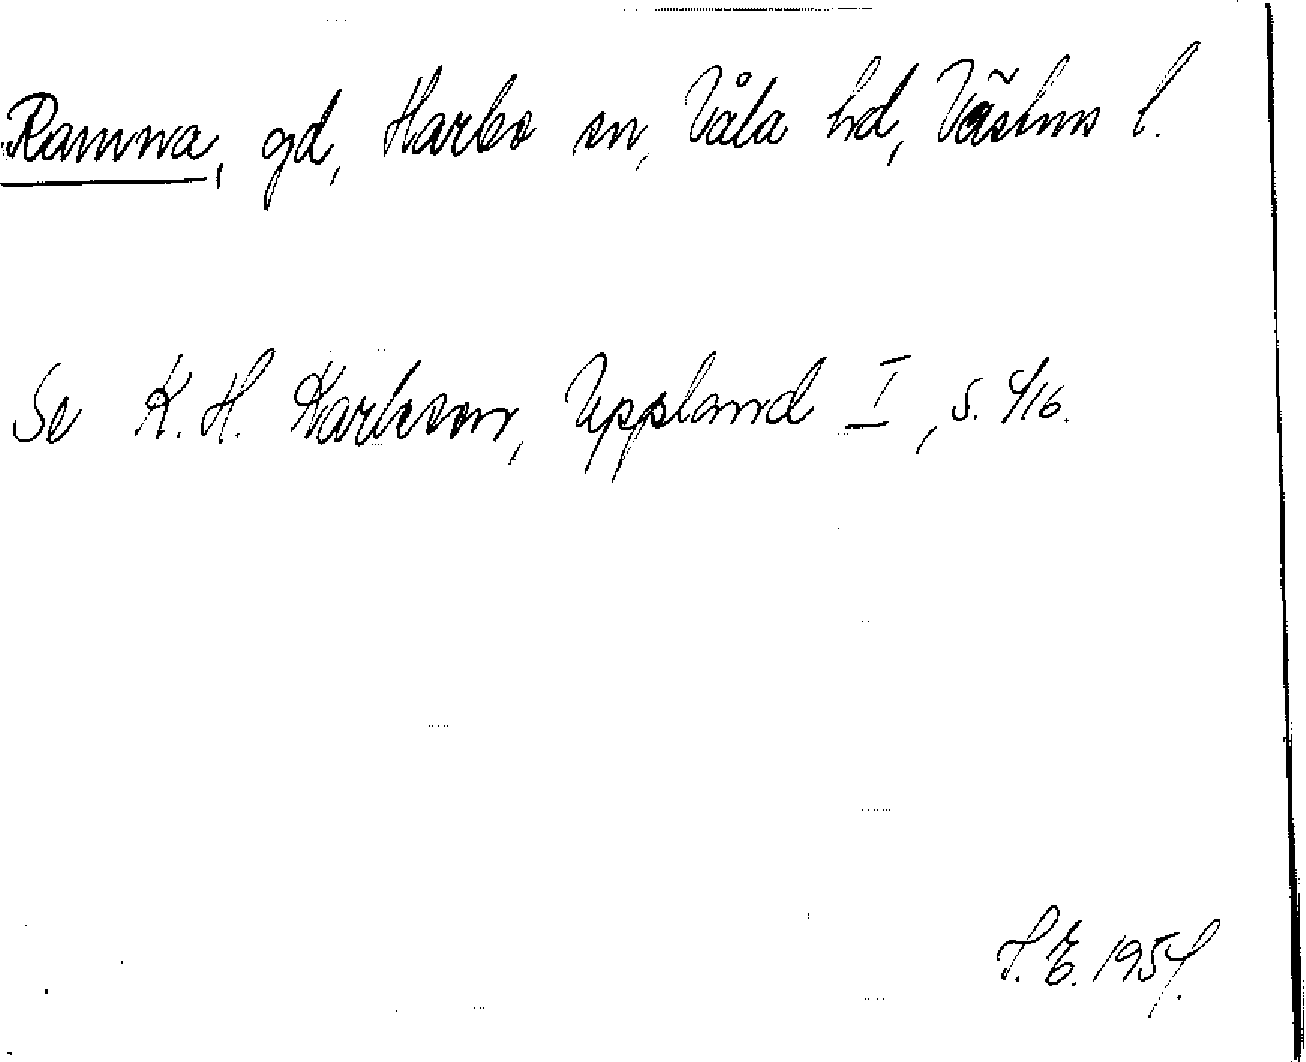 Ramna, gd, Harbo sn, Våla hd, Västms l.
Se K. H. Karlsson, Uppland I, s. 416.
S. E. 1954.